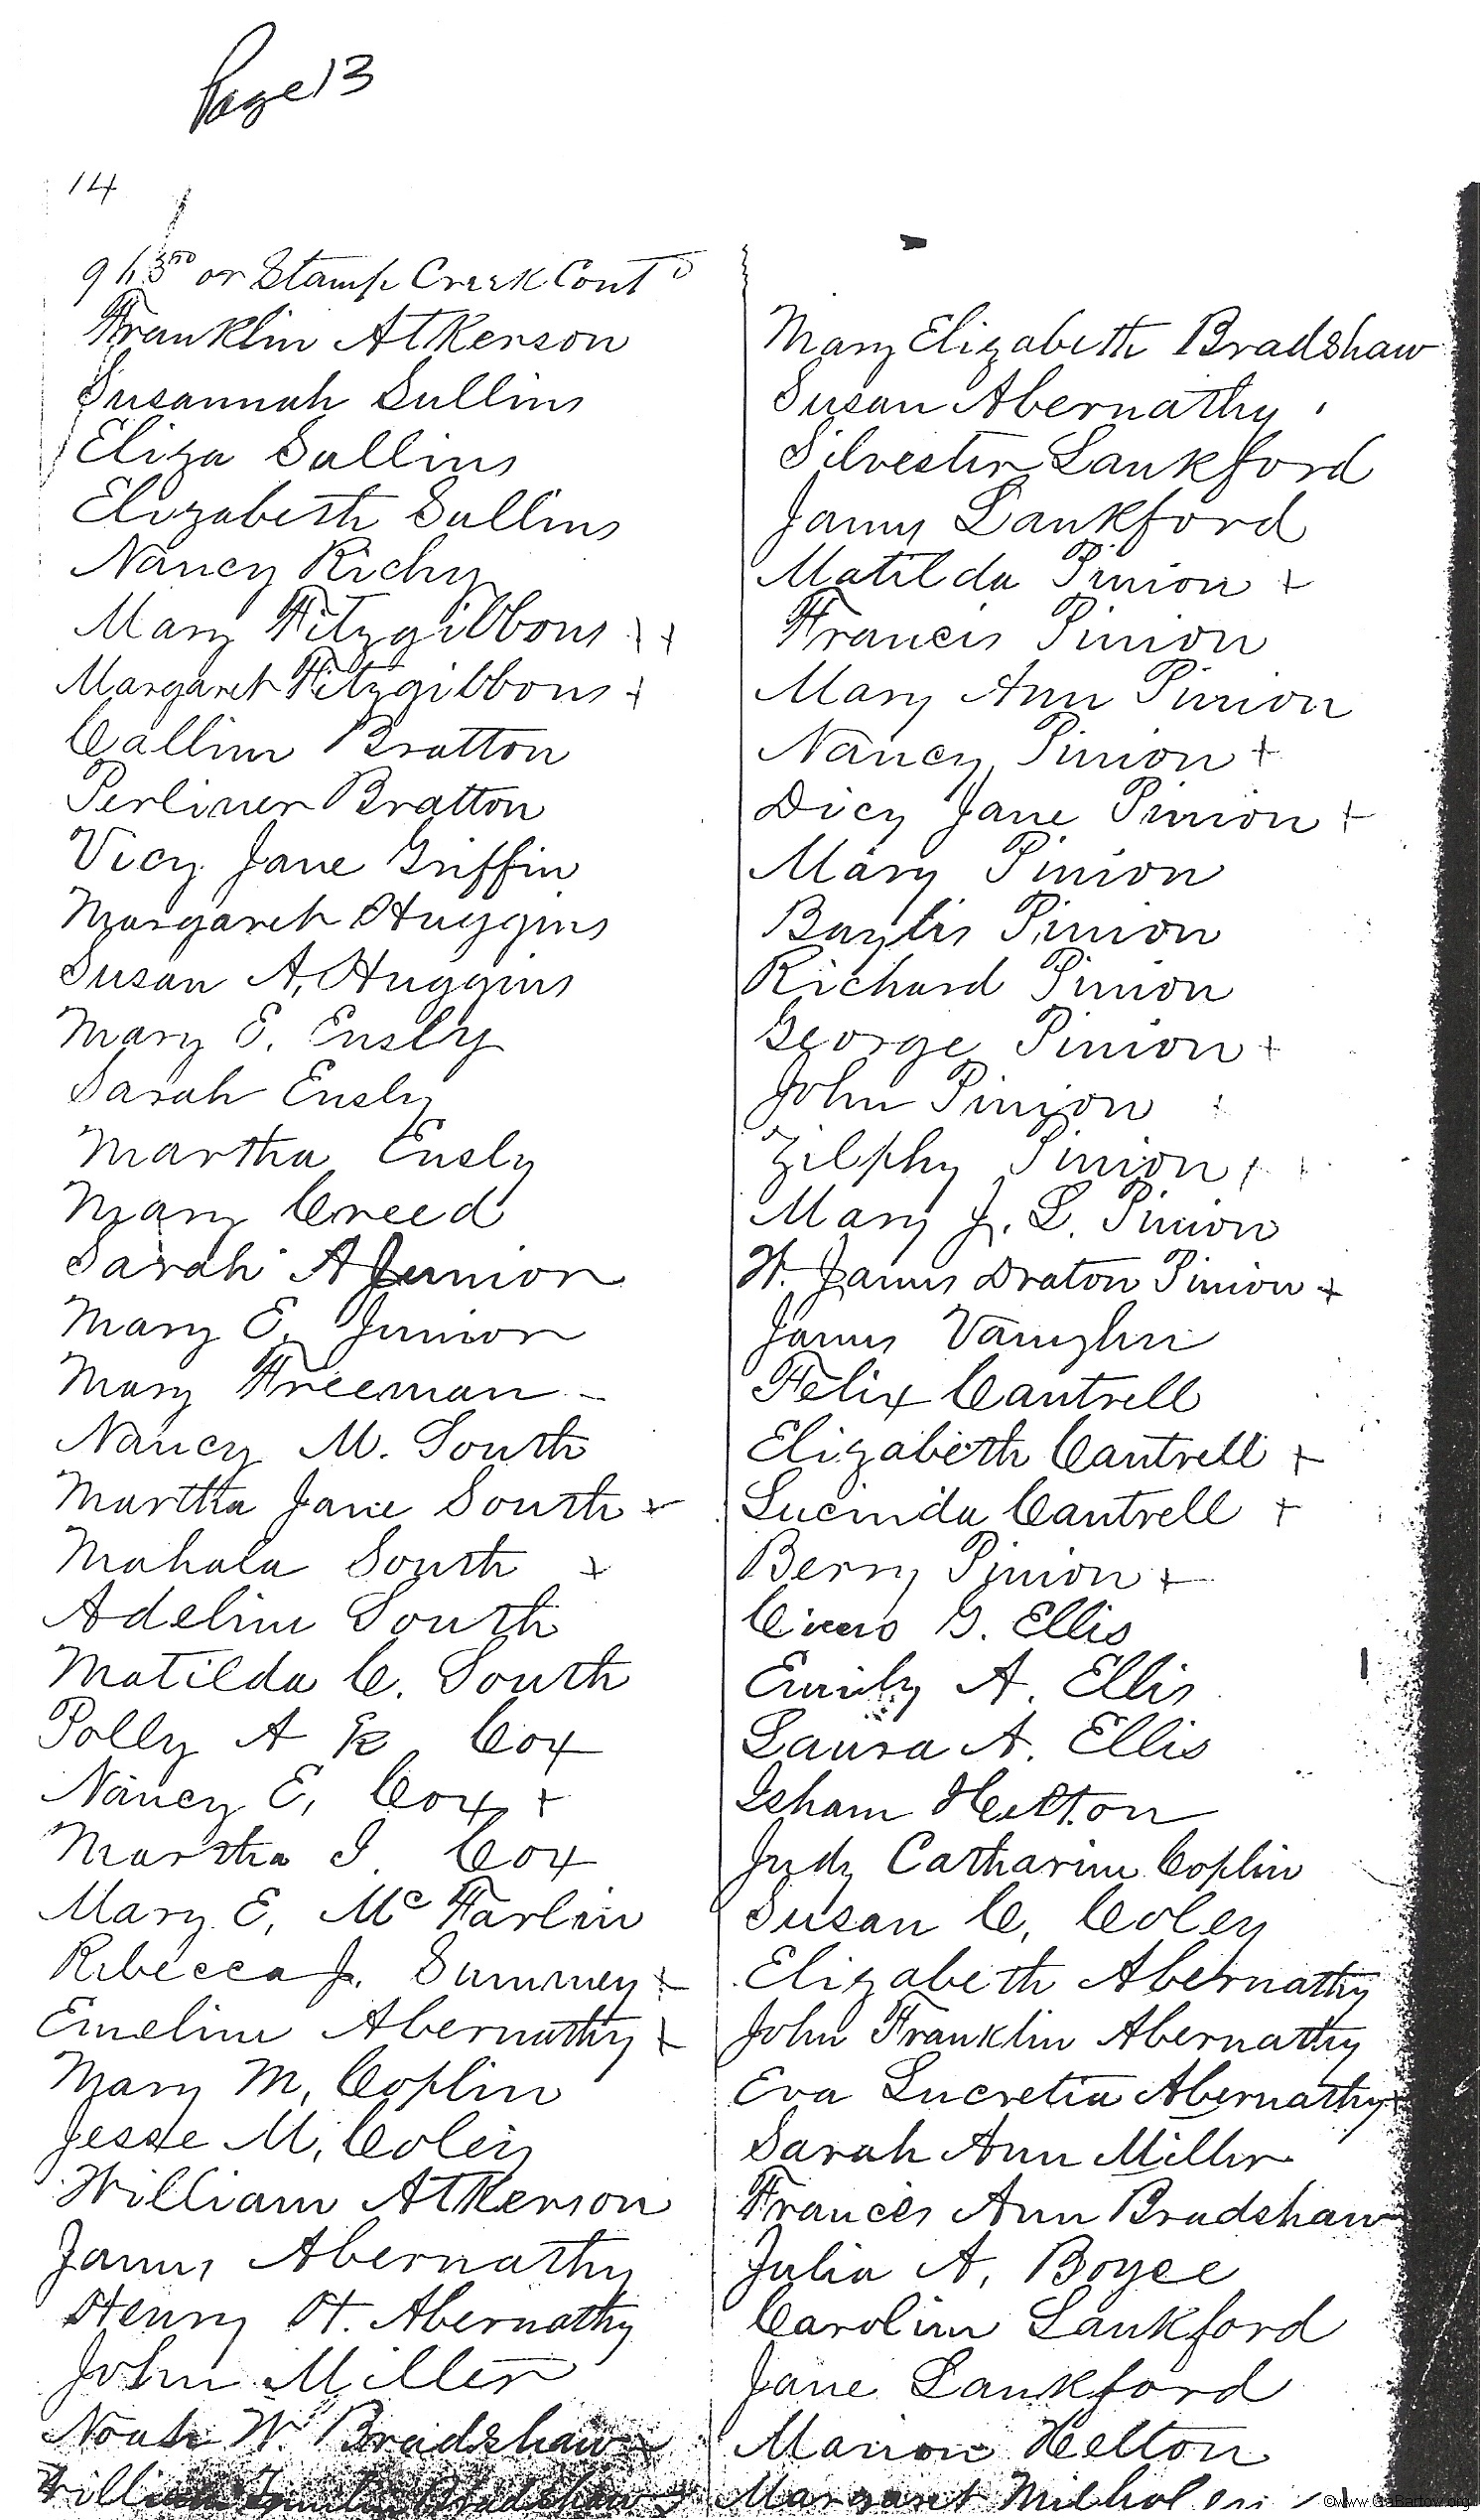 Page 13
14
or Stamp Creek Cont^d
Franklin Atkerson
Susannah Sullins
Eliza Sullins
Elizabeth Sullins
Nancy Richy
Mary Fitzgibbons + +
Margaret Fitzgibbons +
Callim Bratton
Perliner Bratton
Vicy Jane Griffin
Margaret Huggins
Susan A. Huggins
Mary E. Ensly
Sarah Ensly
Martha Ensly
Mary Creed
Sarah A Junior
Mary E. Junior
Mary Freeman -
Nancy M. South
Martha Jane South +
Mahala South +
Adeline South
Matilda C. South
Polly A K Cox
Nancy E. Cox +
Martha I. Cox
Mary E. McFarlin
Rebecca J. Summey +
Emeline Abernathy +
Mary M. Coplin
Jesse M. Coley
William Atkerson
James Abernathy
Henry H. Abernathy
John Miller
Noah W. Bradshaw +
William Bradshaw
Mary Elizabeth Bradshaw
Susan Abernathy
Silvester Lankford
James Lankford
Matilda Pinion +
Francis Pinion
Mary Ann Pinion
Nancy Pinion +
Dicy Jane Pinion +
Mary Pinion
Baylis Pinion
Richard Pinion
George Pinion +
John Pinion
Zilphy Pinion
Mary J. L. Pinion
W. James Draton Pinion +
James Vaughn
Felix Cantrell
Elizabeth Cantrell +
Lucinda Cantrell +
Berry Pinion +
Cicero G. Ellis
Emily A. Ellis
Laura A. Ellis
Isham Helton
Judy Catharine Coplin
Susan C. Coley
Elizabeth Abernathy
John Franklin Abernathy
Eva Lucretia Abernathy +
Sarah Ann Miller
Frances Ann Bradshaw
Julia A. Boyce
Caroline Lankford
Jane Lankford
Marion Helton
Margaret
©www.GaBartow.org